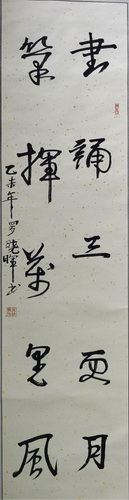 書誦三更月
筆揮萬里風
乙未年 羅曉暉書